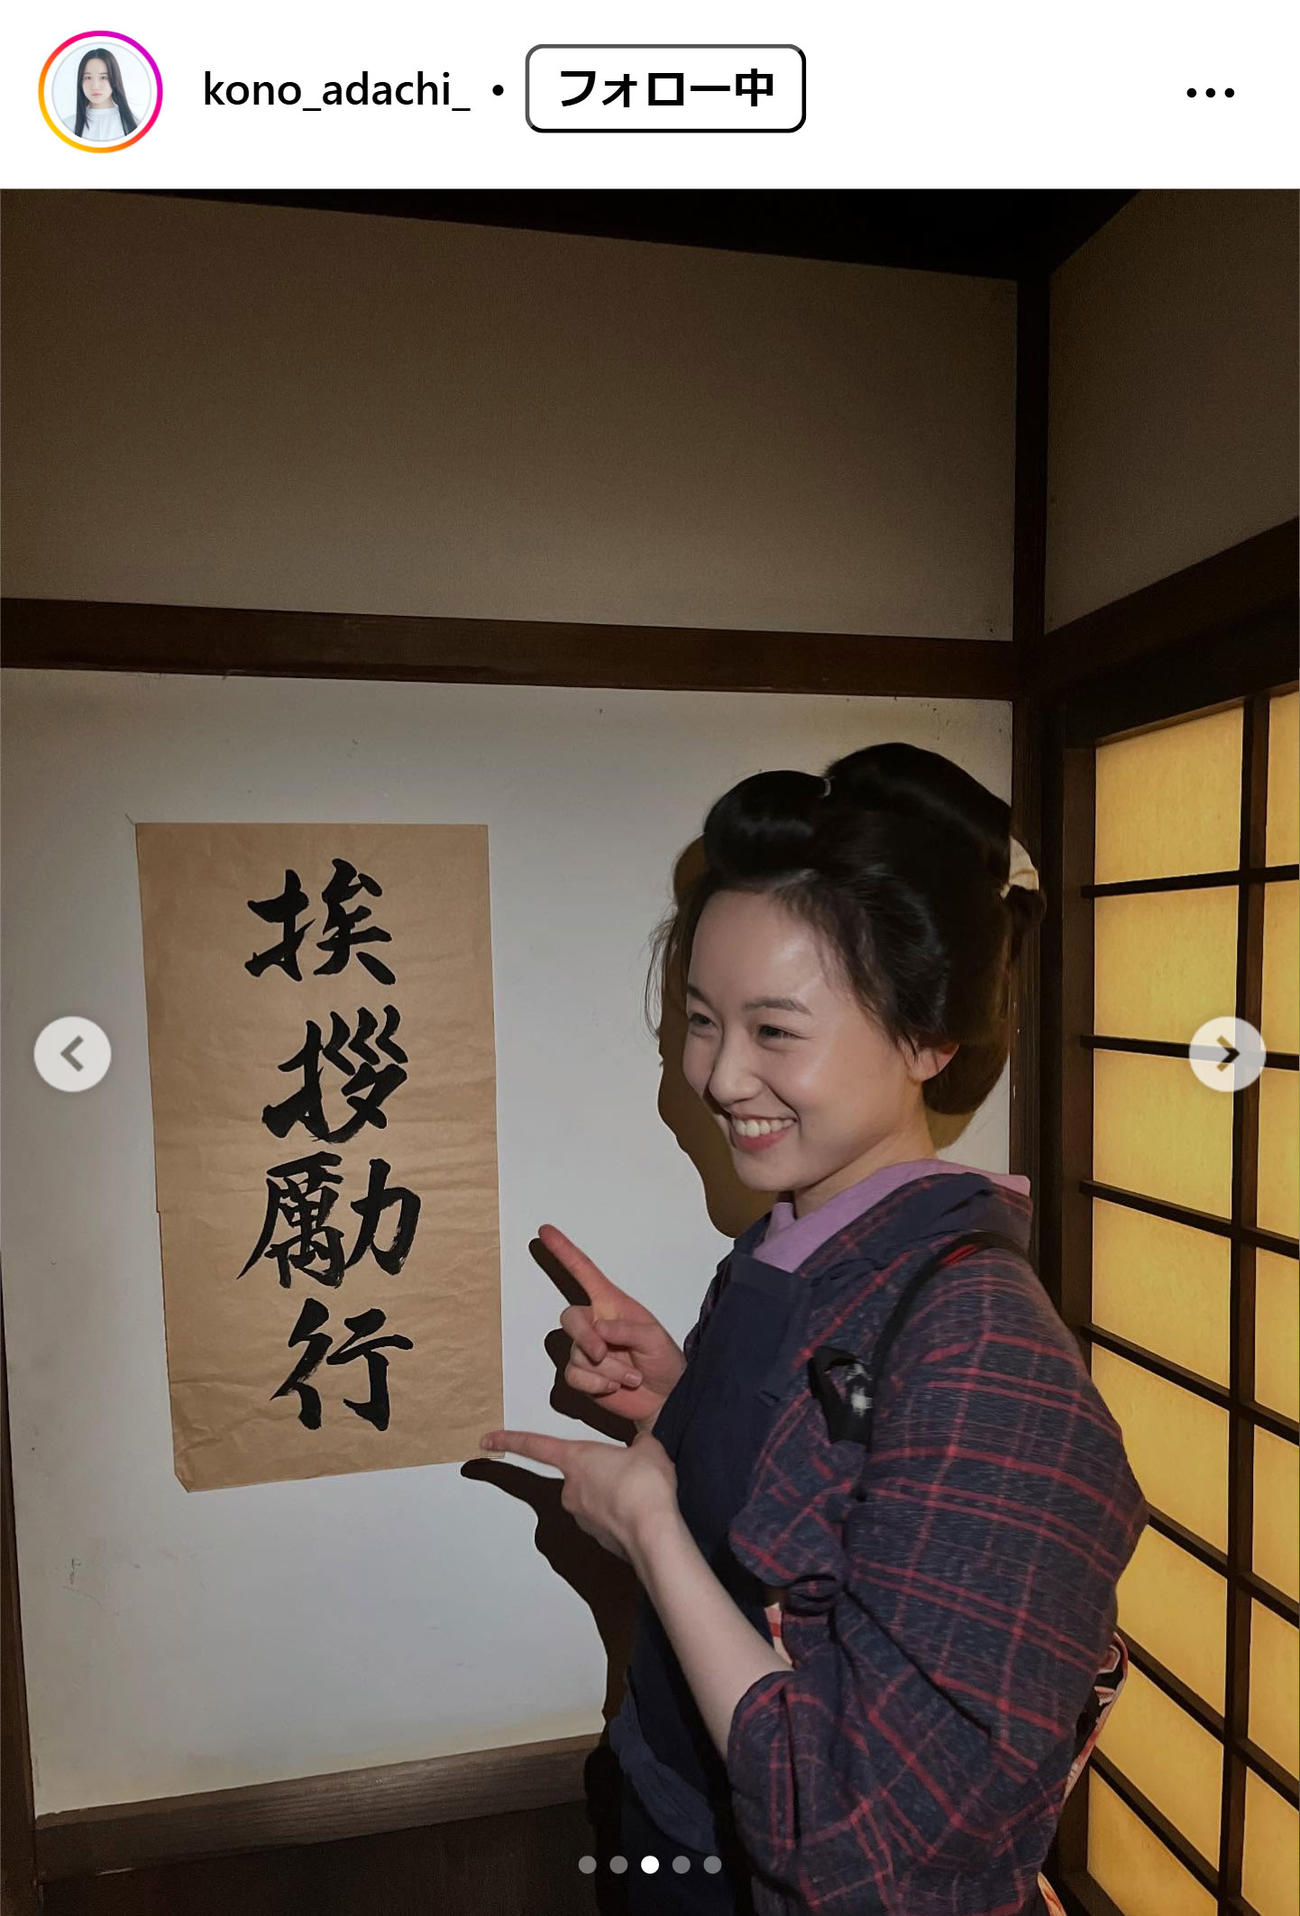 kono_adachi_ • フォロー中
挨拶励行